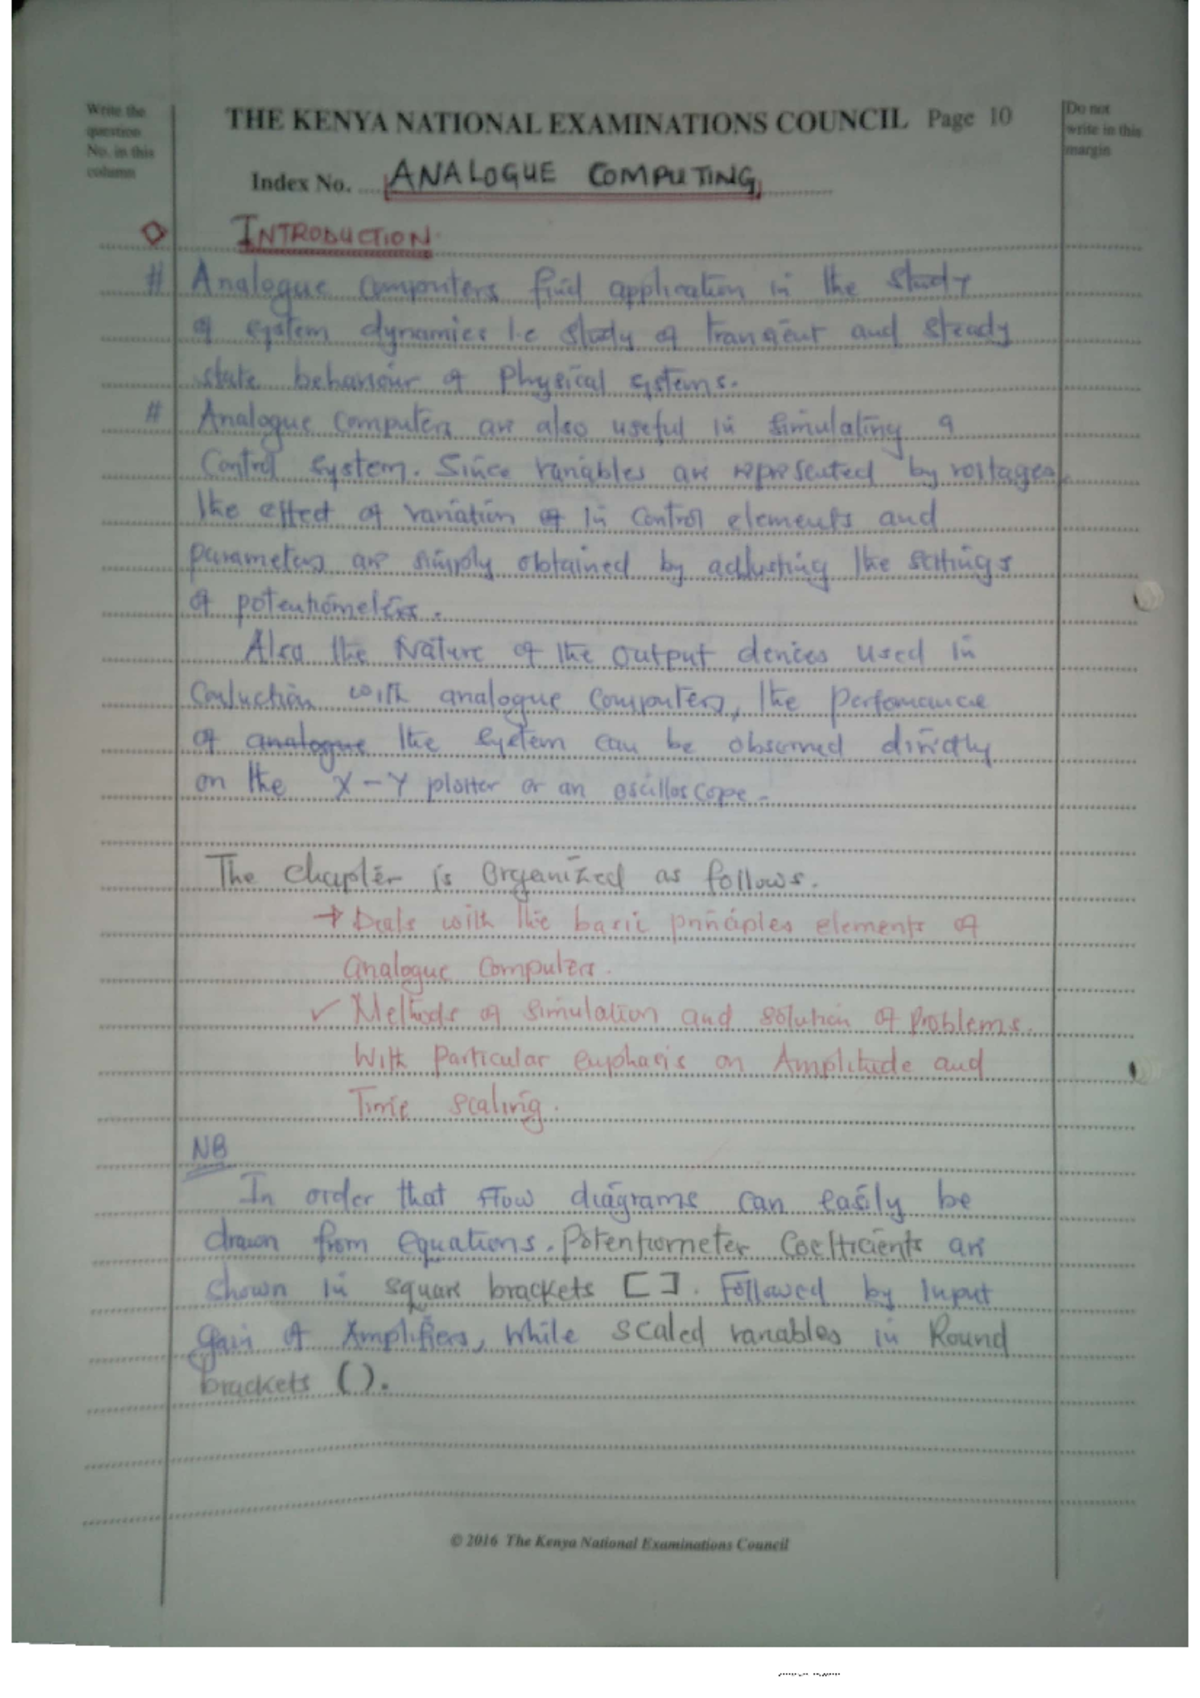 Write the
question
No. in this
column
THE KENYA NATIONAL EXAMINATIONS COUNCIL Page 10
Do not
write in this
margin
Index No. ANALOGUE COMPUTING
INTRODUCTION
# Analogue computers find application in the study
of system dynamics i.e study of transient and steady
state behaviour of physical systems.
# Analogue computers are also useful in simulating a
Control system. Since variables are represented by voltages,
the effect of variation of in control elements and
parameters are simply obtained by adjusting the settings
of potentiometers.
Also the Nature of the output devices used in
with analogue computers, the perfomance
of analogue the system can be observed directly
on the X-Y plotter or an oscilloscope.
The chapter is Organized as follows.
→ Deals with the basic principles elements of
analogue computers.
✓ Methods of simulation and solution of problems.
With particular emphasis on Amplitude and
Time scaling.
NB
In order that flow diagrams can easily be
drawn from equations. Potentiometer Coefficients are
shown in square brackets [ ]. Followed by input
gain of Amplifiers, while scaled variables in Round
brackets ().
© 2016 The Kenya National Examinations Council